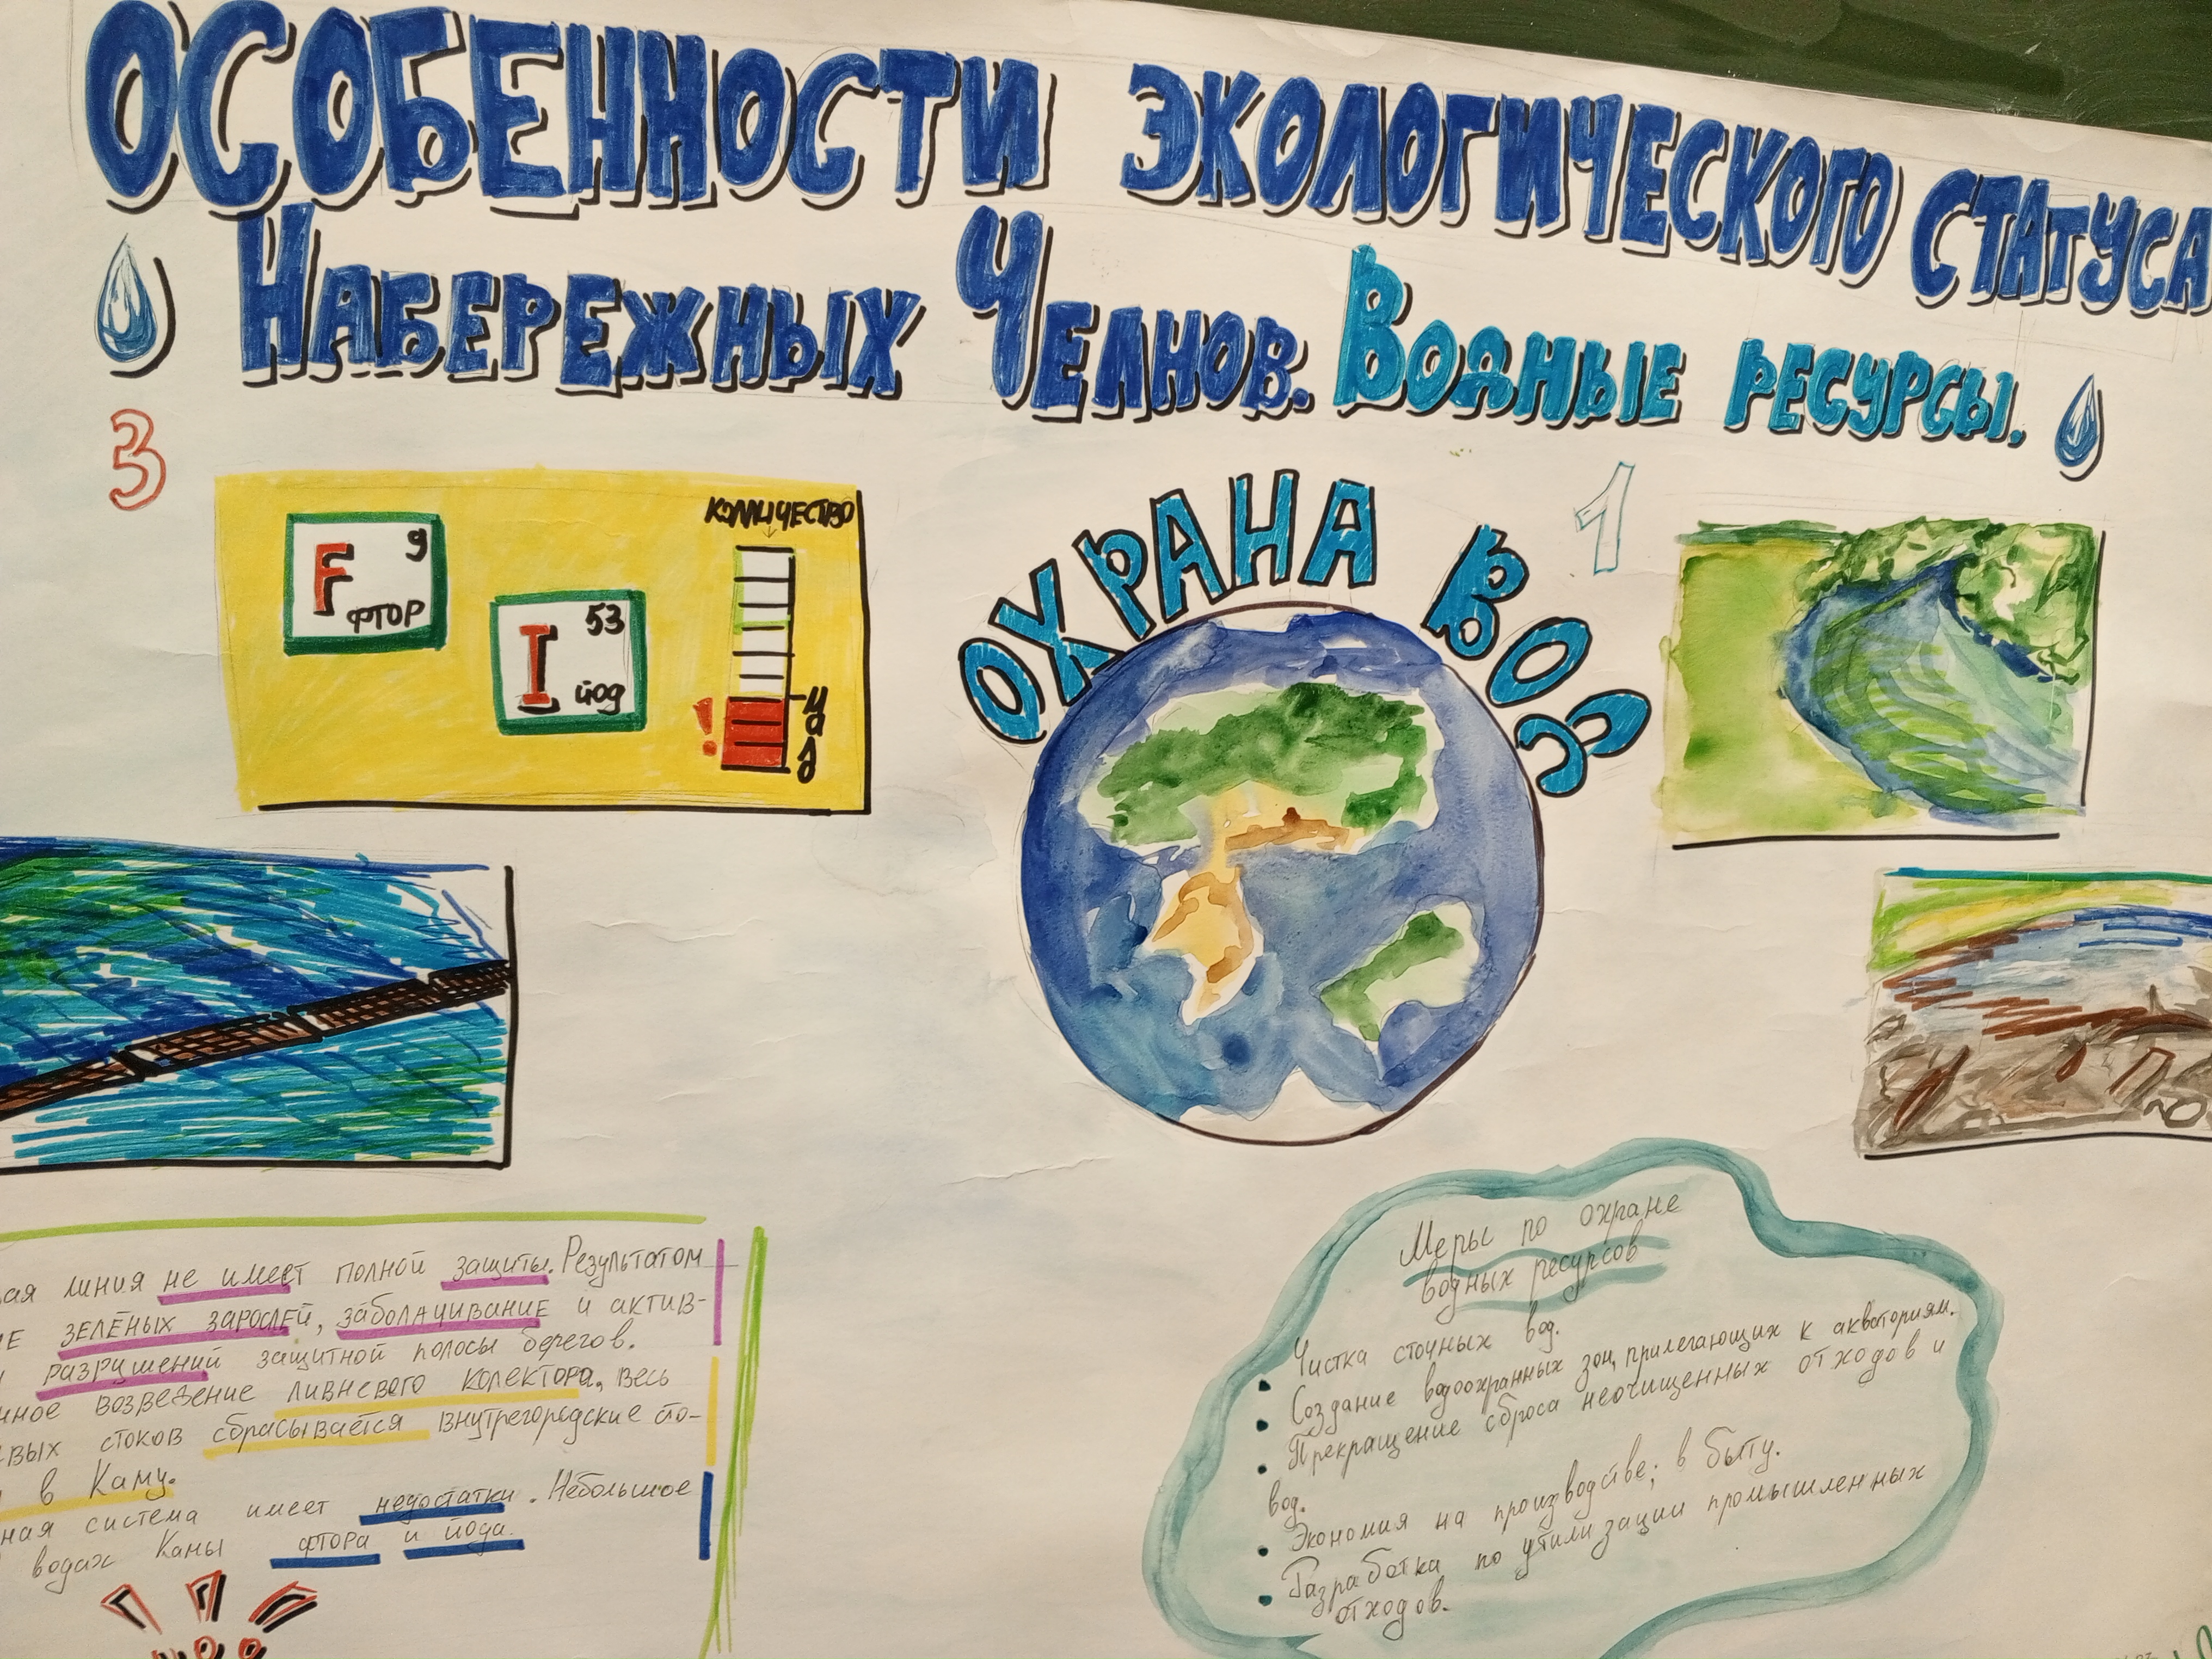 ОСОБЕННОСТИ ЭКОЛОГИЧЕСКОГО СТАТУСА
НАБЕРЕЖНЫХ ЧЕЛНОВ. ВОДНЫЕ РЕСУРСЫ.
3
F 9
ФТОР
I 53
йод
КОЛИЧЕСТВО
!
ОХРАНА ВОД
1
линия не имеет полной защиты. Результатом
зелёных зарослей, заболачивание и актив-
разрушений защитной полосы берегов.
возведение ливневого колектора, весь
стоков сбрасывается внутригородские
в Каму.
система имеет недостатки. Небольшое
водах Камы фтора и йода.
Меры по охране
водных ресурсов
Чистка сточных вод.
• Создание водоохранных зон, прилегающих к акваториям.
• Прекращение сброса неочищенных отходов и
• вод.
Экономия на производстве; в быту.
• Разработка по утилизации промышленных
• отходов.